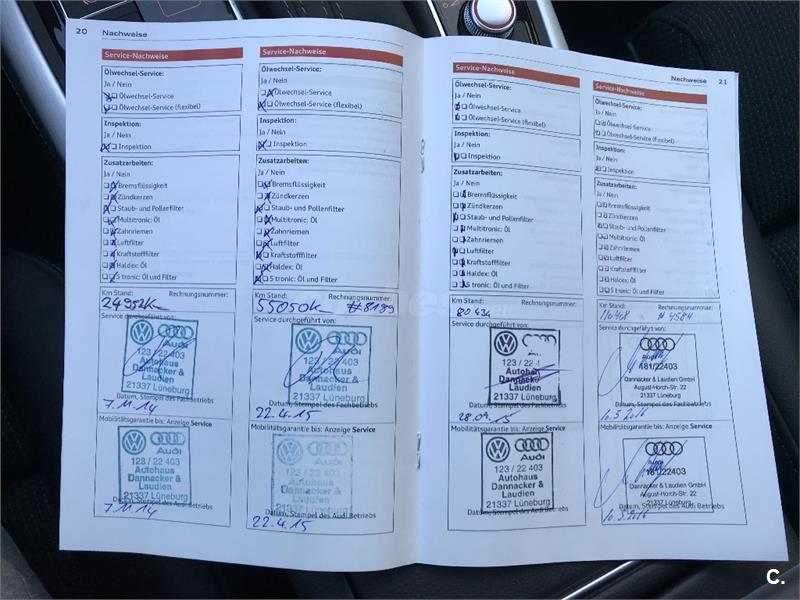 20 Nachweise
Service-Nachweise
Ölwechsel-Service:
Ja / Nein
Ölwechsel-Service
Ölwechsel-Service (flexibel)
Inspektion:
Ja / Nein
Inspektion
Zusatzarbeiten:
Ja / Nein
Bremsflüssigkeit
Zündkerzen
Staub- und Pollenfilter
Multitronic: Öl
Zahnriemen
Luftfilter
Kraftstofffilter
Haldex: Öl
S tronic: Öl und Filter
Km Stand: Rechnungsnummer:
24952K
Service durchgeführt von:
Audi
123 / 22 403
Autohaus
Dannacker &
Laudien
21337 Lüneburg
Datum, Stempel des Fachbetriebs
7.11.14
Mobilitätsgarantie bis: Anzeige Service
Audi
123 / 22 403
Autohaus
Dannacker &
Laudien
21337 Lüneburg
Datum, Stempel des Audi Betriebs
7.11.14
Service-Nachweise
Ölwechsel-Service:
Ja / Nein
Ölwechsel-Service
Ölwechsel-Service (flexibel)
Inspektion:
Ja / Nein
Inspektion
Zusatzarbeiten:
Ja / Nein
Bremsflüssigkeit
Zündkerzen
Staub- und Pollenfilter
Multitronic: Öl
Zahnriemen
Luftfilter
Kraftstofffilter
Haldex: Öl
S tronic: Öl und Filter
Km Stand: Rechnungsnummer:
55050K #8189
Service durchgeführt von:
Audi
123 / 22 403
Autohaus
Dannacker &
Laudien
21337 Lüneburg
Datum, Stempel des Fachbetriebs
22.4.15
Mobilitätsgarantie bis: Anzeige Service
Audi
123 / 22 403
Autohaus
Dannacker &
Laudien
21337 Lüneburg
Datum, Stempel des Audi Betriebs
22.4.15
Nachweise 21
Service-Nachweise
Ölwechsel-Service:
Ja / Nein
Ölwechsel-Service
Ölwechsel-Service (flexibel)
Inspektion:
Ja / Nein
Inspektion
Zusatzarbeiten:
Ja / Nein
Bremsflüssigkeit
Zündkerzen
Staub- und Pollenfilter
Multitronic: Öl
Zahnriemen
Luftfilter
Kraftstofffilter
Haldex: Öl
S tronic: Öl und Filter
Km Stand: Rechnungsnummer:
Service durchgeführt von:
123 / 22
Autohaus
Dannacker
Laudien
21337 Lüneburg
Datum, Stempel des Fachbetriebs
28.09.15
Mobilitätsgarantie bis: Anzeige Service
Audi
123 / 22 403
Autohaus
Dannacker &
Laudien
21337 Lüneburg
Datum, Stempel des Audi Betriebs
Service-Nachweise
Ölwechsel-Service:
Ja / Nein
Ölwechsel-Service
Ölwechsel-Service (flexibel)
Inspektion:
Ja / Nein
Inspektion
Zusatzarbeiten:
Ja / Nein
Bremsflüssigkeit
Zündkerzen
Staub- und Pollenfilter
Multitronic: Öl
Zahnriemen
Luftfilter
Kraftstofffilter
Haldex: Öl
S tronic: Öl und Filter
Km Stand: Rechnungsnummer:
# 4584
Service durchgeführt von:
Audi
181/22403
Dannacker & Laudien GmbH
August-Horch-Str. 22
21337 Lüneburg
Datum, Stempel des Fachbetriebs
10.3.2016
Mobilitätsgarantie bis: Anzeige Service
Audi
181/22403
Dannacker & Laudien GmbH
August-Horch-Str. 22
21337 Lüneburg
Datum, Stempel des Audi Betriebs
10.3.2016
C.